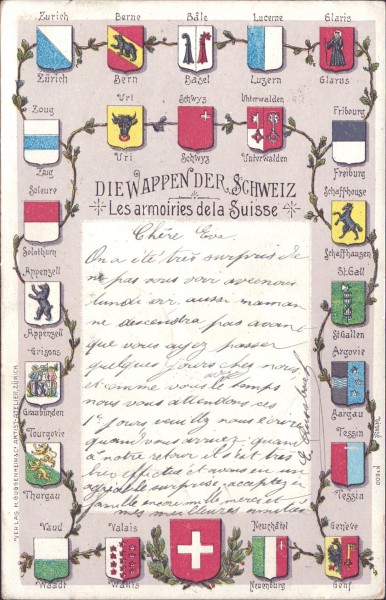 Zurich Berne Bâle Lucerne Glaris
Zürich Bern Basel Luzern Glarus
Zoug Uri Schwyz Unterwalden Fribourg
Zug Uri Schwyz Unterwalden Freiburg
Soleure Schaffhouse
DIE WAPPEN DER SCHWEIZ
Les armoiries de la Suisse
Solothurn Schaffhausen
Appenzell St. Gall
Appenzell St. Gallen
Grisons Argovie
Graubünden Aargau
Tourgovie Tessin
Thurgau Tessin
Vaud Valais Neuchâtel Genève
Waadt Wallis Neuenburg Genf
Chère Eve.
On a été très surpris de
ne pas vous voir
lundi aussi maman
ne descendra pas avant
que vous ayez passer
quelques jours chez nous
et comme vous le temps
nous vous attendons ces
jours nous écrire
quand vous arrivez quand
à notre retour il était très
très et avons eu un
surprise acceptez
famille mille mercis et
mes meilleures amitiés
VERLAG H. GUGGENHEIM & Cº ARTIST. ATELIER, ZÜRICH.